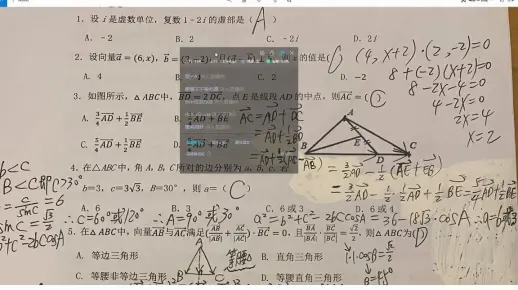 1. 设 i 是虚数单位，复数 1-2i 的虚部是（ A ）
A. -2 B. 2 C. -2i D. 2i
2. 设向量a⃗=(6,x), b⃗=(3,-2), 的值是( C
(4, x+2)·(2,-2)=0
8+(-2)(x+2)=0
8-2x-4=0
4-2x=0
2x=4
x=2
A. 4 C. 2 D. -2
3. 如图所示，△ABC中，BD⃗=2DC⃗，点E是线段AD的中点，则AC⃗=( D )
A. 3/4 AD⃗+1/2 BE⃗
C. 5/4 AD⃗+1/2 BE⃗
AC⃗=AD⃗+DC⃗
=AD⃗+1/2 BD⃗
=AD⃗+1/2(AD⃗-AB⃗)
=3/2 AD⃗-1/2(AE⃗+EB⃗)
=3/2 AD⃗-1/2·1/2 AD⃗+1/2 BE⃗=5/4 AD⃗+1/2 BE⃗
A
B
E
D
C
4. 在△ABC中，角A, B, C所对的边分别为a, b, c, 若
b=3, c=3√3, B=30°，则a=( C )
b<C
=6
A. 6 B. 3 C. 6或3 D. 6或4
∴C=60°或120° ∴A=90°或30° a²=b²+c²-2bccosA=36-18√3·cosA
5. 在△ABC中，向量AB⃗与AC⃗满足(AB⃗/|AB⃗|+AC⃗/|AC⃗|)·BC⃗=0，且BA⃗/|BA⃗|·BC⃗/|BC⃗|=√2/2，则△ABC为( D )
A. 等边三角形 B. 直角三角形
C. 等腰非等边三角形 D. 等腰直角三角形
A
B
C
等腰
1·1·cosB=√2/2
B=45°